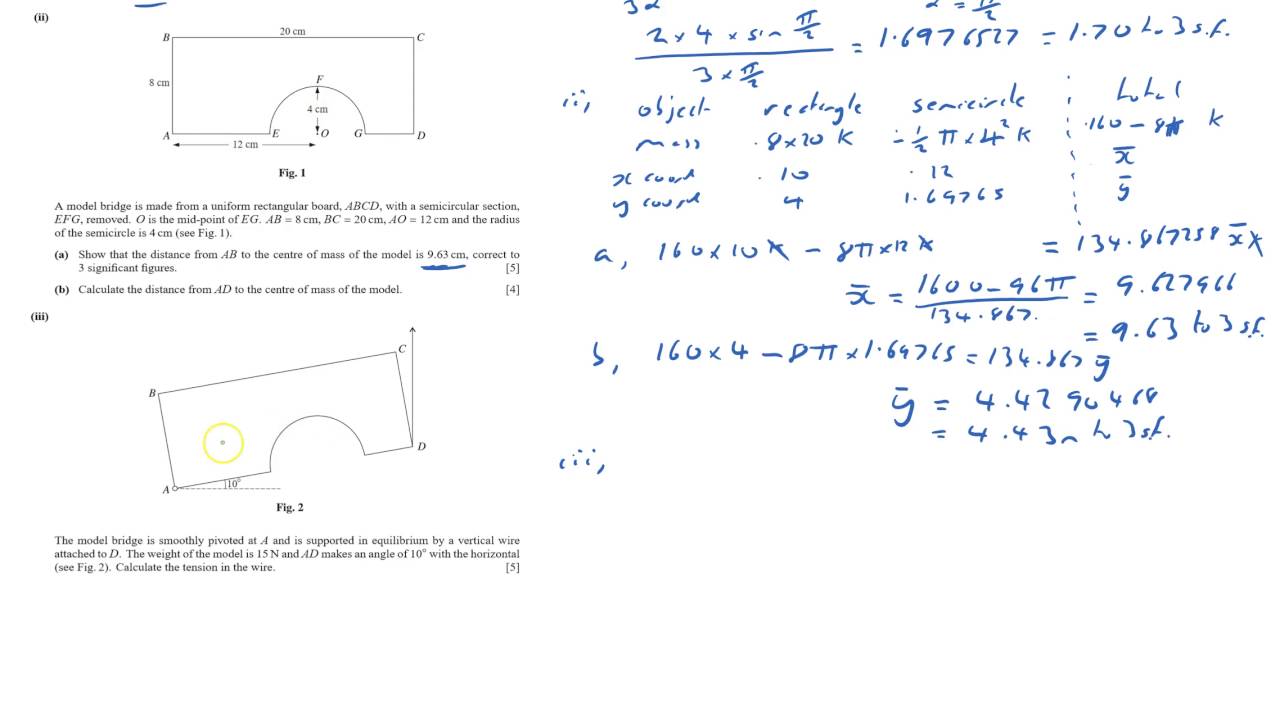 (ii)
B 20 cm C
8 cm
F
4 cm
A E O G D
12 cm
Fig. 1
A model bridge is made from a uniform rectangular board, ABCD, with a semicircular section,
EFG, removed. O is the mid-point of EG. AB = 8 cm, BC = 20 cm, AO = 12 cm and the radius
of the semicircle is 4 cm (see Fig. 1).
(a) Show that the distance from AB to the centre of mass of the model is 9.63 cm, correct to
3 significant figures. [5]
(b) Calculate the distance from AD to the centre of mass of the model. [4]
(iii)
C
B
D
A 10°
Fig. 2
The model bridge is smoothly pivoted at A and is supported in equilibrium by a vertical wire
attached to D. The weight of the model is 15 N and AD makes an angle of 10° with the horizontal
(see Fig. 2). Calculate the tension in the wire. [5]
3α
2 × 4 × sin π/2 = 1.6976527 = 1.70 to 3 s.f.
3 × π/2
ii, object rectangle semicircle total
mass 8×20 K -½ π × 4² K 160 - 8π K
x coord 10 12 x̄
y coord 4 1.69765 ȳ
a, 160×10K - 8π×12K = 134.867258 x̄K
x̄ = 1600 - 96π = 9.627966
134.867
= 9.63 to 3 s.f.
b, 160 × 4 - 8π × 1.69765 = 134.867 ȳ
ȳ = 4.4290468
= 4.43 to 3 s.f.
iii,